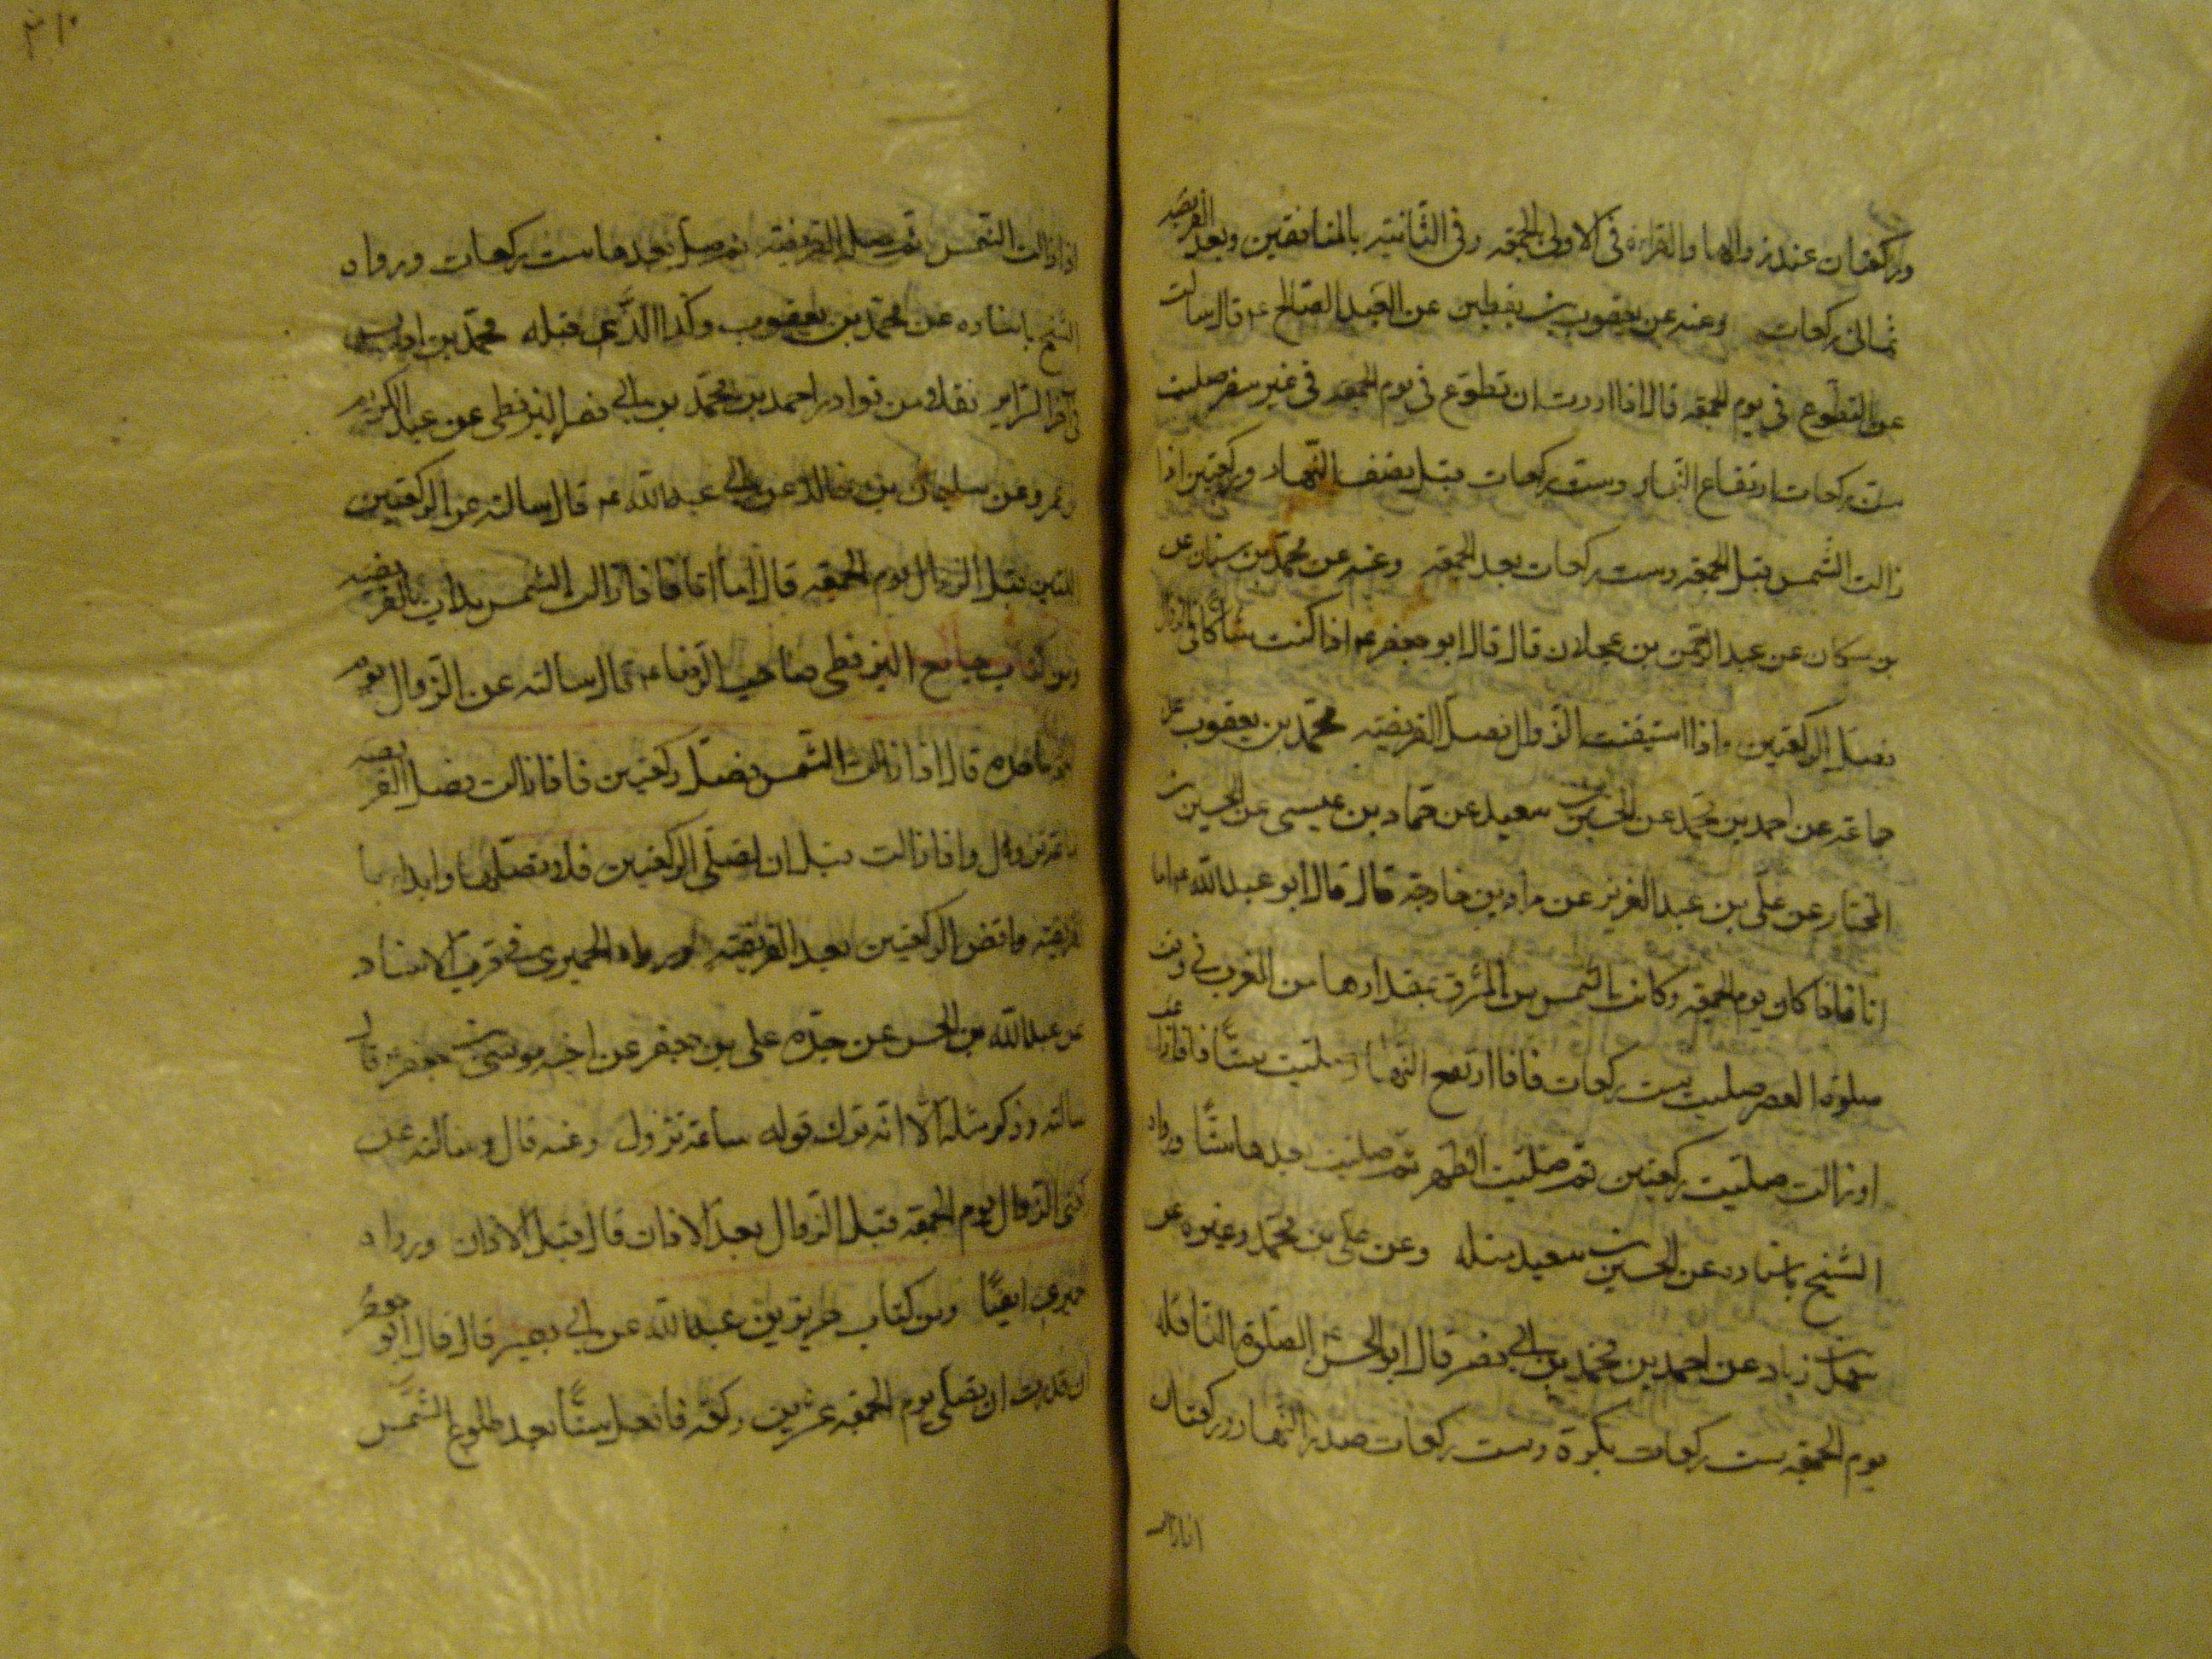 وركعتان عند زوالها والقراءة في الاولى بالجمعة وفي الثانية بالمنافقين وبعد الفريضة
ثماني ركعات وعنه عن يعقوب بن يقطين عن العبد الصالح ع قال سالت
عن التطوع في يوم الجمعة قال اذا اردت ان تطوع في يوم الجمعة في غير سفر صليت
ست ركعات ارتفاع النهار وست ركعات قبل نصف النهار وركعتين اذا
زالت الشمس قبل الجمعة وست ركعات بعد الجمعة وعنه عن محمد بن سنان عن
بن سكان عن عبد الرحمن بن عجلان قال قال ابو جعفر ع اذا كنت شاكا في الزوال
فصل الركعتين واذا استيقنت الزوال فصل الفريضة محمد بن يعقوب عن
جماعة عن احمد بن محمد عن الحسين بن سعيد عن حماد بن عيسى عن الحسين بن
المختار عن علي بن عبد العزيز عن مراد بن خارجة قال قال ابو عبد الله ع اما
انا فاذا كان يوم الجمعة وكانت الشمس من المشرق بمقدارها من المغرب في وقت
صلوة العصر صليت ست ركعات فاذا ارتفع النهار صليت ستا فاذا زاغت
او زالت صليت ركعتين ثم صليت الظهر ثم صليت بعدها ستا ورواه
الشيخ باسناده عن الحسين بن سعيد مثله وعن علي بن محمد وغيره عن
سهل بن زياد عن احمد بن محمد بن ابي نصر قال قال ابو الحسن ع الصلوة النافلة
يوم الجمعة ست ركعات بكرة وست ركعات صدر النهار وركعتان
اذا زالت
٢١٠
اذا زالت الشمس ثم صل الفريضة ثم صل بعدها ست ركعات ورواه
الشيخ باسناده عن محمد بن يعقوب وكذا الذي قبله محمد بن ادريس
في اخر السراير نقلا من نوادر احمد بن محمد بن ابي نصر البزنطي عن عبد الكريم
بن عمرو عن سليمان بن خالد عن ابي عبد الله ع قال سالته عن الركعتين
اللتين قبل الزوال يوم الجمعة قال اما انا فاذا زالت الشمس بدات بالفريضة
ومن كتاب جامع البزنطي صاحب الرضا ع قال سالته عن الزوال يوم
ما حده قال اذا قامت الشمس فصل ركعتين فاذا زالت فصل الفريضة
ساعة تزول واذا زالت قبل ان تصلي الركعتين فلا تصلهما وابدا بـ
الفريضة واقض الركعتين بعد الفريضة ورواه الحميري في قرب الاسناد
عن عبد الله بن الحسن عن جده علي بن جعفر عن اخيه موسى بن جعفر ع قال
سالته وذكر مثله الا انه ترك قوله ساعة تزول وعنه قال وسالته عن
ركعتي الزوال يوم الجمعة قبل الزوال بعد الاذان قال قبل الاذان ورواه
الحميري ايضا ومن كتاب حريز بن عبد الله عن ابي بصير قال قال ابو جعفر
ان قدرت ان تصلي يوم الجمعة عشرين ركعة فافعل ستا بعد طلوع الشمس